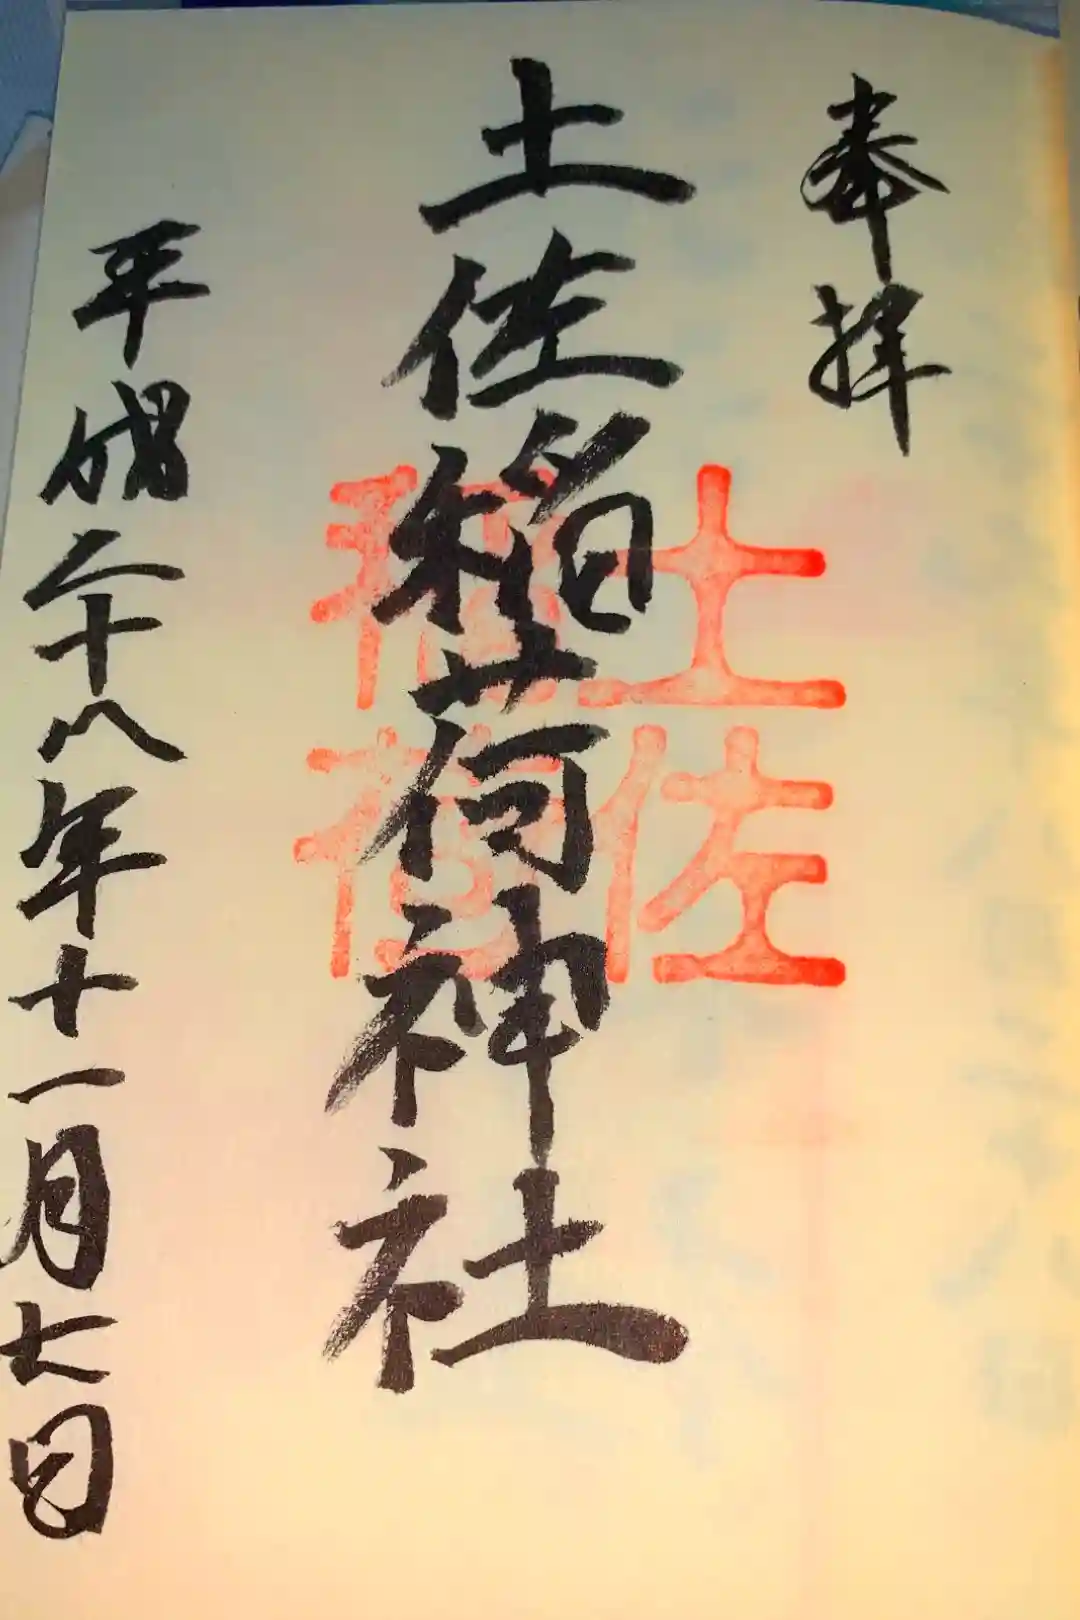 奉拝
土佐稲荷神社
土佐
稲荷
平成二十八年十一月七日